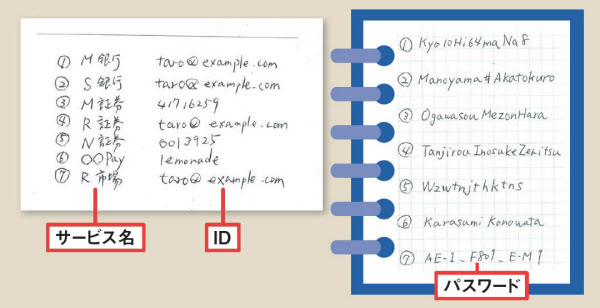 ① M 銀行 taro@example.com
② S 銀行 taro@example.com
③ M 証券 41716259
④ R 証券 taro@example.com
⑤ N 証券 0013925
⑥ ○○Pay lemonade
⑦ R 市場 taro@example.com
サービス名
ID
① Kyo10Hi64maNa8
② Manoyama#Akatokuro
③ OgawasouMezonHara
④ TanjirouInosukeZenitsu
⑤ Wzwtnjthktns
⑥ Karasumi Konowata
⑦ AE-1_F801_E-M1
パスワード